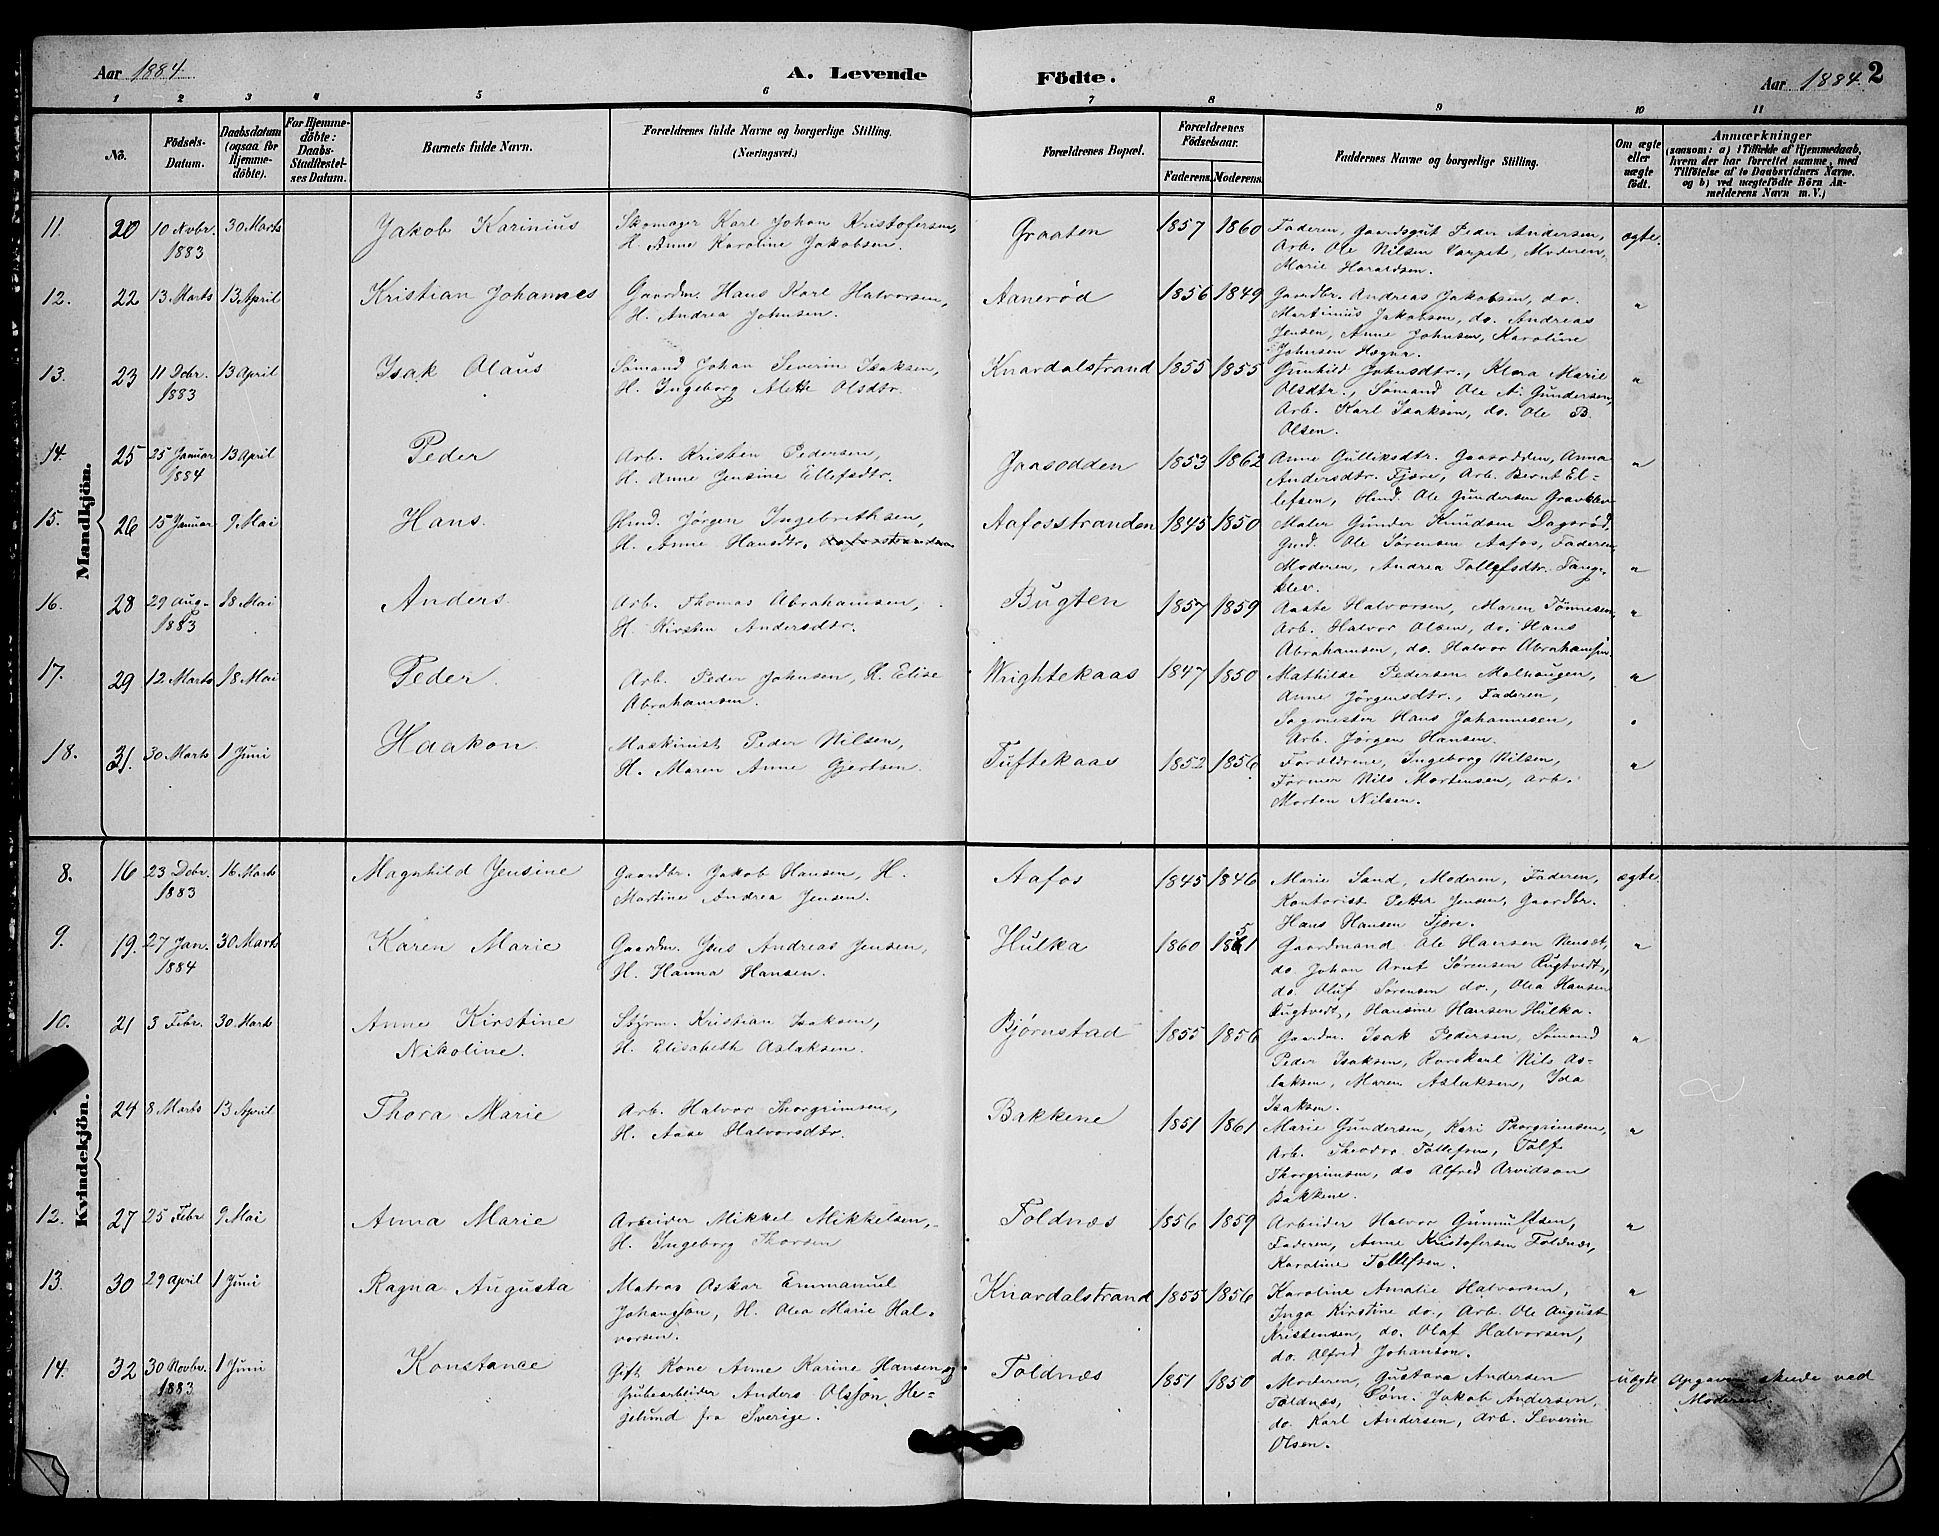 Aar 1884. A. Levende Födte. Aar 1884. 2
1 2 3 4 5 6 7 8 9 10 11
No. Födsels-Datum. Daabsdatum (ogsaa for Hjemme-döbte). For Hjemme-döbte: Daabs-Stadfæstel-ses Datum. Barnets fulde Navn. Forældrenes fulde Navne og borgerlige Stilling. (Næringsvei.) Forældrenes Bopæl. Forældrenes Födselsaar. Faderens. Moderens. Faddernes Navne og borgerlige Stilling. Om ægte eller uægte födt. Anmærkninger (saasom: a) i Tilfælde af Hjemmedaab, hvem der har forrettet samme, med Tilföielse af to Daabsvidners Navne. og b) ved uægtefödte Börn An-melderens Navn m.V.)
Mandkjön.
11. 20 10 Novbr. 30 Marts Jakob Karinius Skomager Karl Johan Kristofersen, Graaten 1857 1860 Faderen, Gaardsgut Peder Andersen, ægte.
1883 H. Anne Karoline Jakobsen. Arb. Ole Nilsen Varpet, Moderen,
Marie Haraldsen.
12. 22 13 Marts 13 April Kristian Johannes Gaardm. Hans Karl Halvorsen, Aanerød 1856 1849 Gaardbr. Andreas Jakobsen, do. "
H. Andrea Johnsen. Martinius Jakobsen, do. Andreas
Jensen, Anne Johnsen, Karoline
Johnsen Hægna.
13. 23 11 Debr. 13 April Isak Olaus Sømand Johan Severin Isaksen, Knardalstrand 1855 1855 Gunhild Johnsdtr., Klara Marie "
1883 H. Ingeborg Alette Olsdtr. Olsdtr., Sømand Ole N. Gundersen,
Arb. Karl Isaksen, do. Ole B.
Olsen.
14. 25 25 Januar 13 April Peder Arb. Kristen Pedersen, Jaasodden 1853 1862 Anne Gulliksdtr. Gaasodden, Anna "
1884 H. Anne Jensine Ellefsdtr. Andersdtr. Fjære, Arb. Bernt El-
lefsen, Ole Gundersen
15. 26 15 Januar 9 Mai Hans. Jørgen Ingebrethsen, Aafosstranden 1845 1850 Maler Gunder Knudsen Dagsrød,
H. Anne Hansdtr. Aafosstranden Ole Sørensen Aafos, Faderen, "
Moderen, Andrea Tollefsdtr. Tange-
klev.
16. 28 29 Aug. 18 Mai Anders. Arb. Thomas Abrahamsen, Bugten 1857 1859 Aaste Halvorsen, Maren Tønnesen, "
1883 H. Kirsten Andersdtr. Arb. Halvor Olsen, do. Hans
Abrahamsen, do. Halvor Abrahamsen.
17. 29 12 Marts 18 Mai Peder. Arb. Peder Johnsen, H. Elise Wrightekaas 1847 1850 Mathilde Pedersen Malhaugen, "
Abrahamsen. Anne Jörgensdtr., Faderen,
Sagmester Hans Johannesen,
Arb. Jørgen Hansen.
18. 31. 30 Marts 1 Juni Haakon. Maskinist Peder Nilsen, Tuftekaas 1852 1856 Forældrene, Ingeborg Nilsen, "
H. Maren Anne Gjertsen. Former Nils Mortensen, Arb.
Morten Nilsen.
Kvindekjön.
8. 16 23 Debr. 16 Marts Magnhild Jensine Gaardbr. Jakob Hansen, H. Aafos 1845 1846 Marie Sand, Moderen, Faderen, ægte.
1883 Martine Andrea Jensen. Kontorist Petter Jensen, Gaardbr.
Hans Hansen Fjære.
9. 19. 27 Jan. 30 Marts Karen Marie Gaardm. Jens Andreas Jensen, Hulka 1860 1851 Gaardmand Ole Hansen Nensæt, "
1884 H. Hanna Hansen. do. Johan Arnt Sørensen Rugtvedt,
do. Oluf Sørensen do., Olea Hansen
Rugtvedt, Hansine Hansen Hulka.
10. 21 3 Febr. 30 Marts Anne Kirstine Styrm. Kristian Isaksen, Bjørnstad 1855 1856 Gaardm. Isak Pedersen, Sømand "
Nikoline. H. Elisabeth Aslaksen. Peder Isaksen, Nils As-
laksen, Maren Aslaksen, Ida
Isaksen.
24 8 Marts 13 April Thora Marie Arb. Halvor Thorgrimsen, Bakkene 1851 1861 Marie Gundersen, Kari Thorgrimsen, "
H. Aase Halvorsdtr. Arb. Theodor Tollefsen, Tolf
Thorgrimsen, do Alfred Arvidson
Bakkene.
12. 27 25 Febr 9 Mai Anna Marie Arbeider Mikkel Mikkelsen, Toldnæs 1856 1859 Arbeider Halvor Gunnulfsen, "
H. Ingeborg Thorsen Faderen, Anne Kristofersen Toldnæs,
Karoline Tollefsen.
13. 30 29 April 1 Juni Ragna Augusta Matros Askar Emmanuel Knardalstrand 1855 1856 Karoline Amalie Halvorsen, "
Johansson, H. Olea Marie Hal- Inga Kirstine do., Arb. Ole August
vorsen. Kristensen, do. Olaf Halvorsen,
do. Alfred Johanson.
14. 32 30 Novbr. 1 Juni Konstance Gift Kone Anne Karine Hansen og Toldnæs 1851 1850 Moderen, Gustava Andersen uægte Opgaven skeede ved
1883 Grubearbeider Anders Olsson He- Toldnæs, Søm. Jakob Andersen, Moderen.
gelund fra Sverige. do. Karl Andersen, Arb. Severin
Olsen.